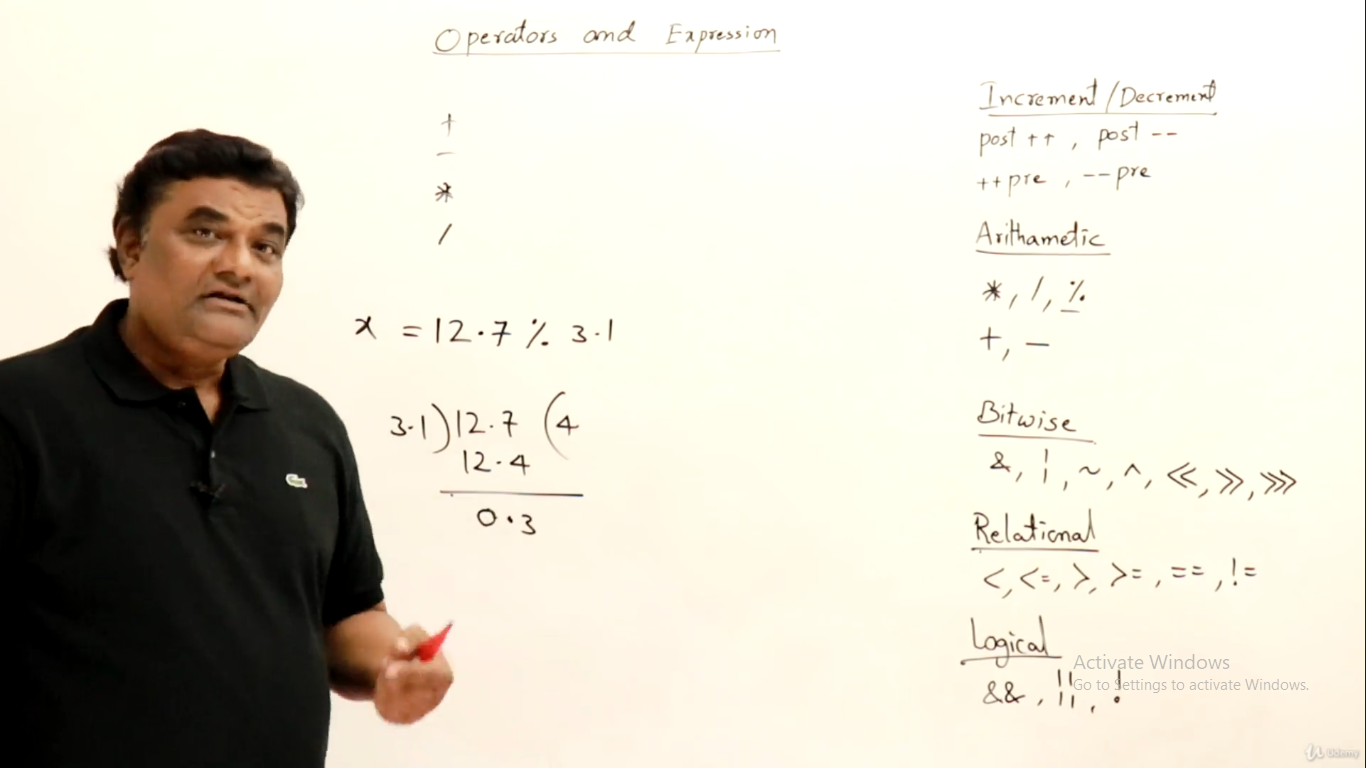 Operators and Expression
+
-
*
/
x = 12.7 % 3.1
3.1) 12.7 (4
12.4
0.3
Increment/Decrement
post ++ , post --
++pre , --pre
Arithametic
*, /, %
+, -
Bitwise
&, ¦, ~, ^, <<, >>, >>>
Relational
<, <=, >, >=, ==, !=
Logical
&&, ¦¦, !
Activate Windows
Go to Settings to activate Windows.
Udemy